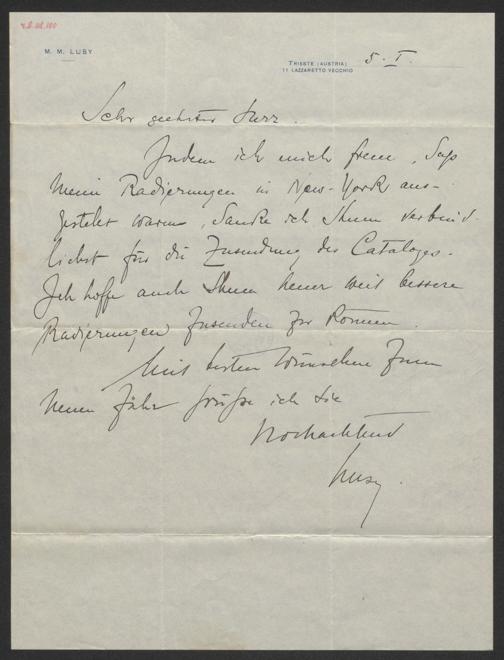 M. M. LUSY
TRIESTE (AUSTRIA)
11 LAZZARETTO VECCHIO
5. I.
Sehr geehrter Herr.
Indem ich mich freue, dass
meine Radierungen in New-York aus-
gestellt waren, danke ich Ihnen verbind-
lichst für die Zusendung des Cataloges.
Ich hoffe auch Ihnen heuer weit bessere
Radierungen zusenden zu können.
Mit besten Wünschen zum
neuen Jahr grüsse ich Sie
hochachtend
Lusy.